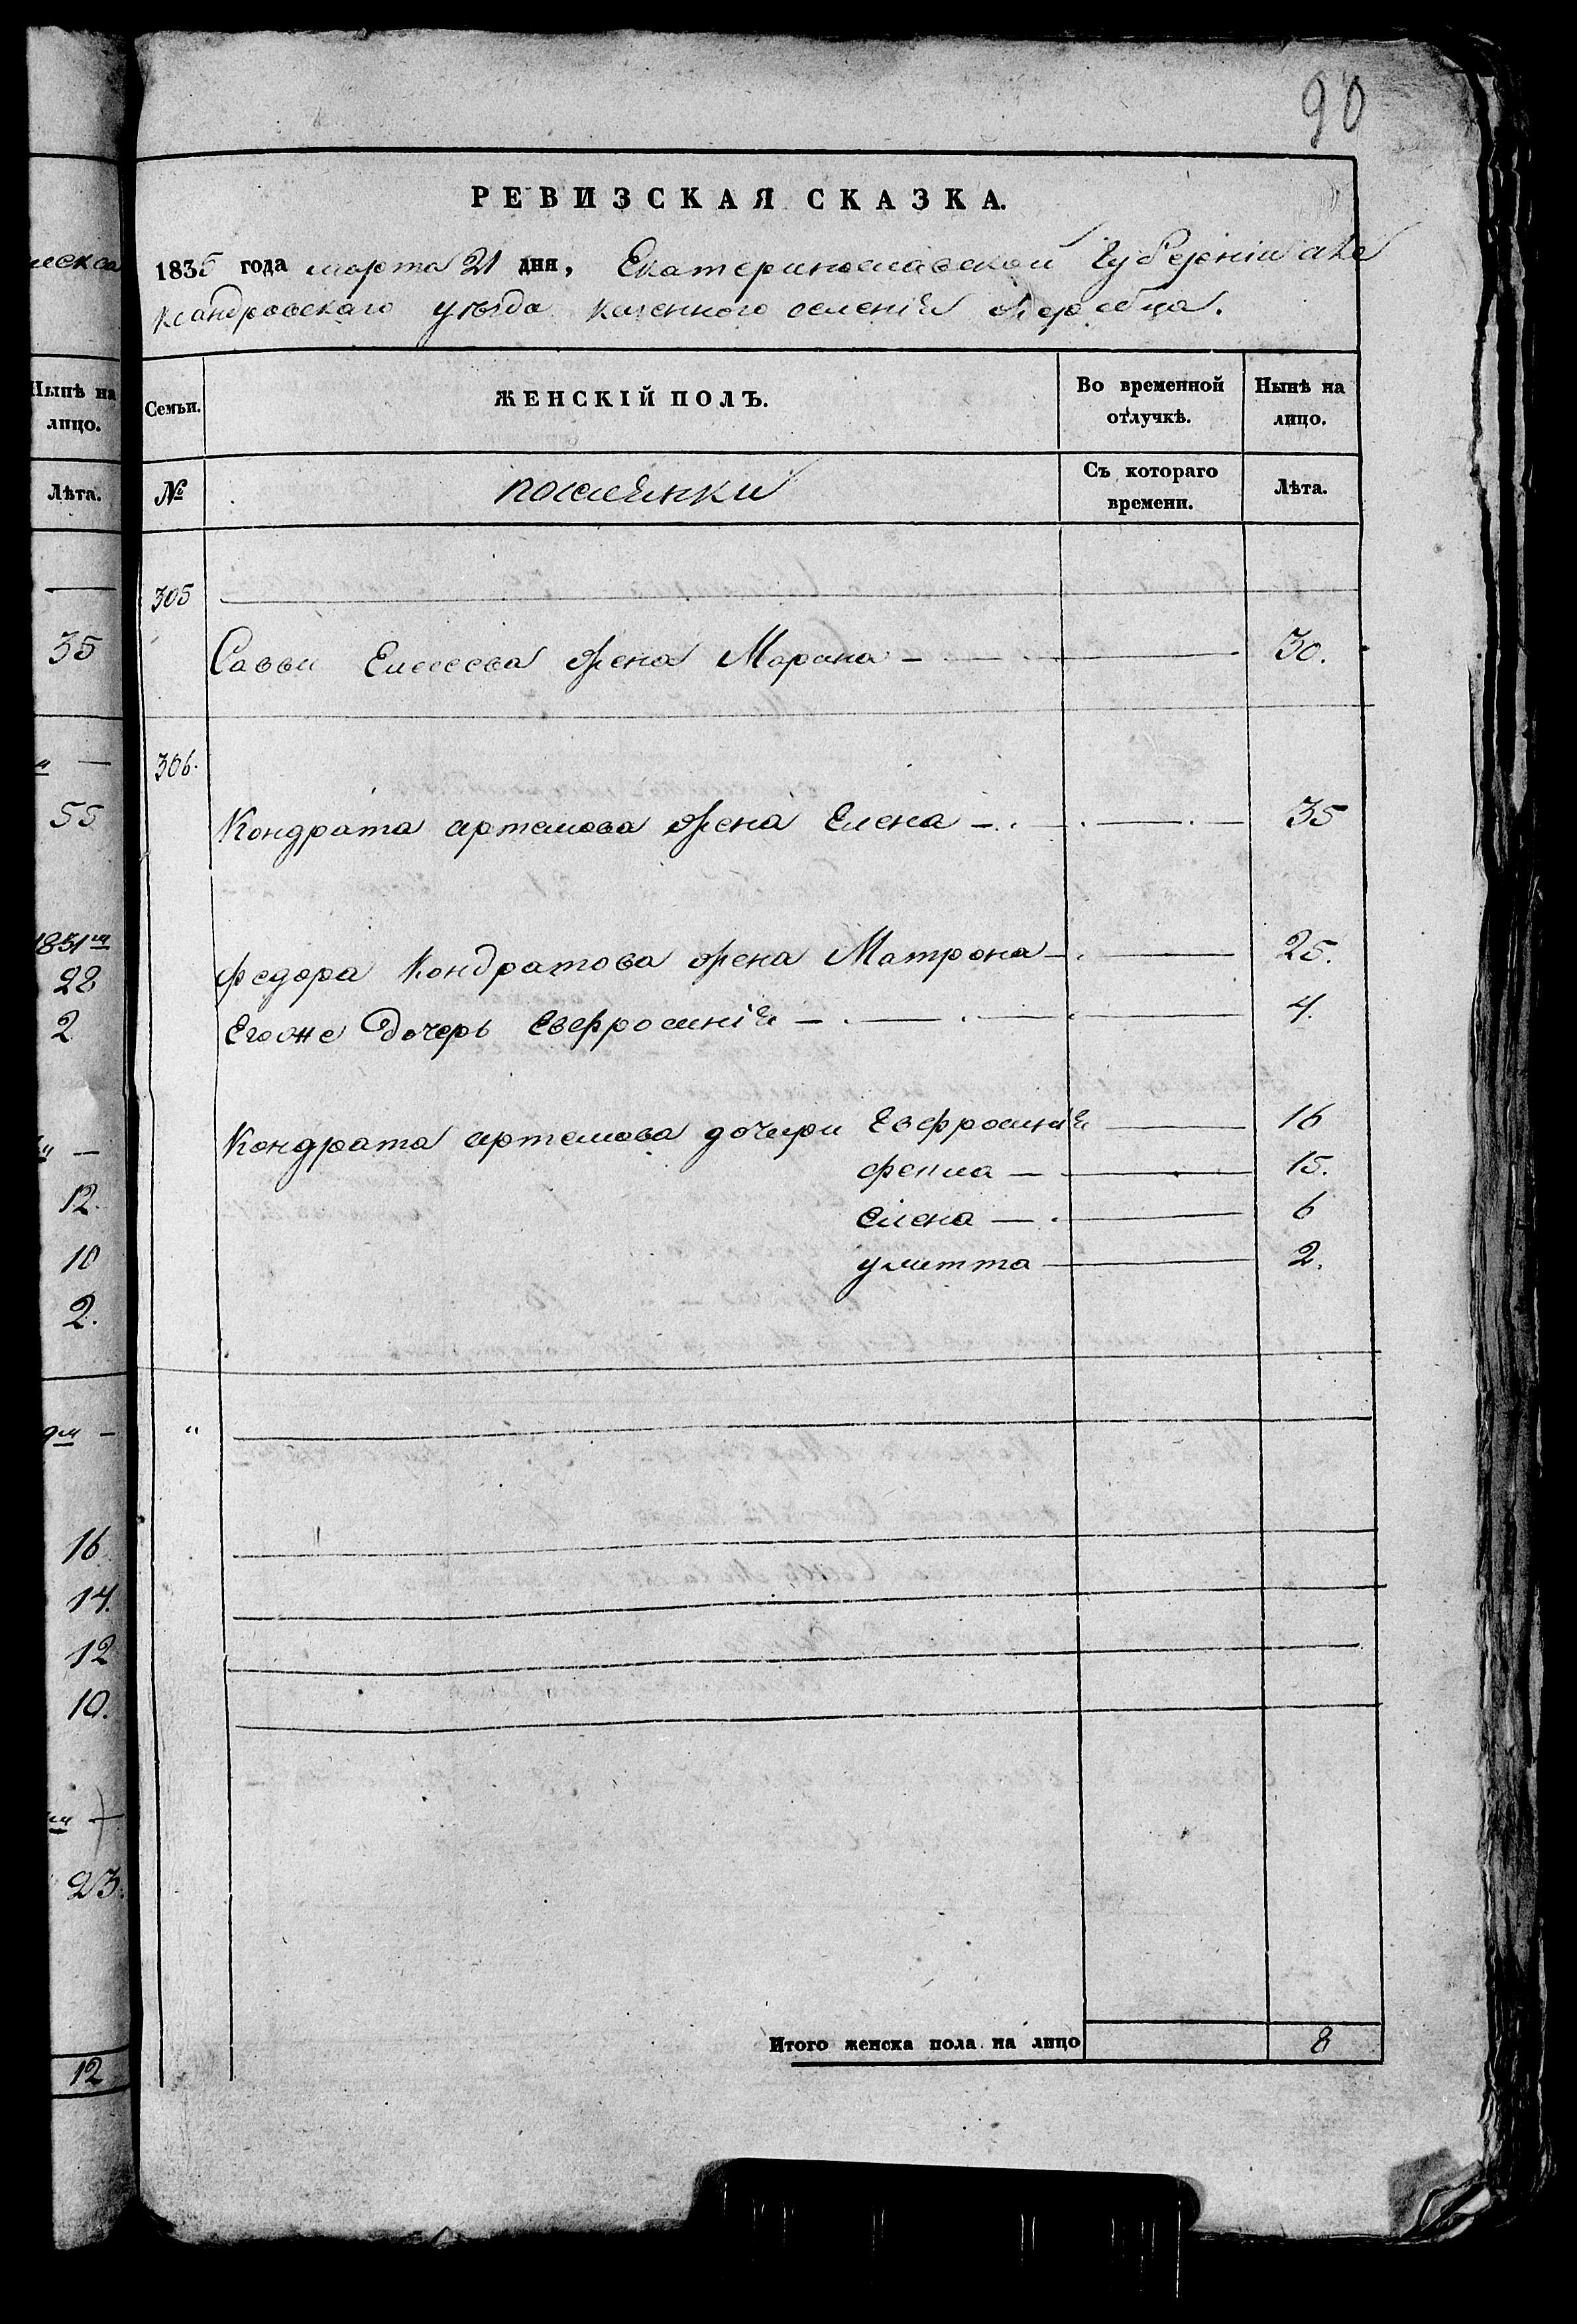 90
РЕВИЗСКАЯ СКАЗКА.
1835 года марта 21 дня, Екатеринославской Губерніи Але
ксандровскаго уѣзда казенного селенія Жеребца.
Семьи.
ЖЕНСКІЙ ПОЛЪ.
Во временной отлучкѣ.
Нынѣ на лицо.
№
поселянки
Съ котораго времени.
Лѣта.
305
Саввы Елисеева жена Марина — 30.
306.
Кондрата Артемова жена Елена — 35
Федора Кондратова жена Матрона — 25.
Егоже дочерь Евфросинія — 4.
Кондрата Артемова дочери Евфросинія — 16
Фекла — 15.
Елена — 6
Улитта — 2.
"
Итого женска пола на лицо 8
Нынѣ на
лицо.
Лѣта.
35
55
1831
28
2
12.
10
2.
16
14.
12
10.
23.
12